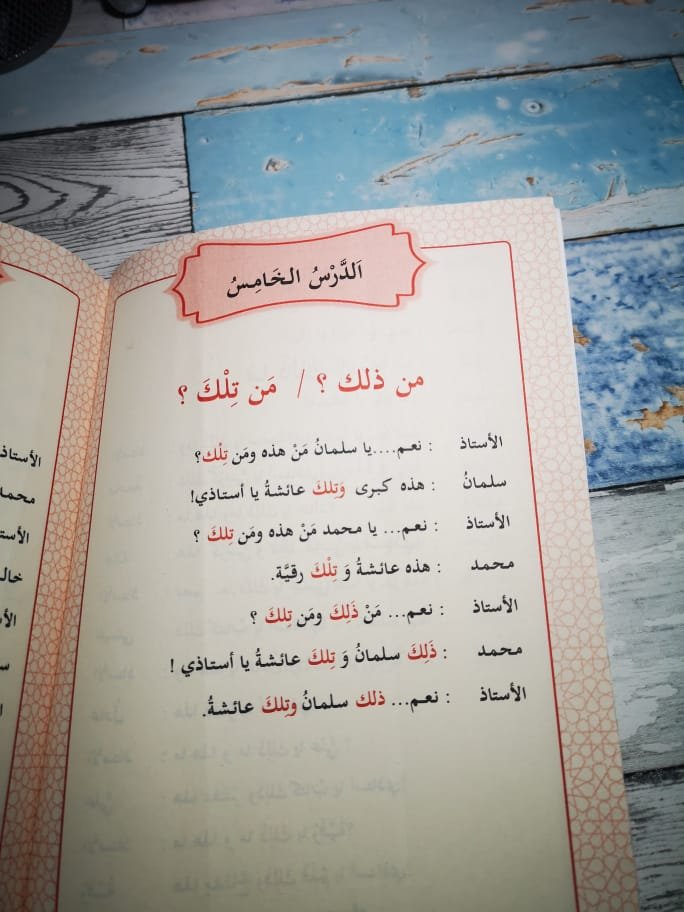 اَلدَّرْسُ الخَامِسُ
من ذلك ؟ / مَن تِلْكَ ؟
الأستاذ : نعم....يا سلمانُ مَنْ هذه ومَن تِلْك؟
سلمانُ : هذه كبرى وَتِلكَ عائشةُ يا أستاذي!
الأستاذ : نعم... يا محمد مَنْ هذه ومَن تِلكَ ؟
محمد : هذه عائشةُ وَ تِلْكَ رقيَّة.
الأستاذ : نعم... مَنْ ذَلِكَ ومَن تِلكَ ؟
محمد : ذَلِكَ سلمانُ وَ تِلكَ عائشةُ يا أستاذي !
الأستاذ : نعم... ذلك سلمانُ وتِلكَ عائشةُ.
الأستاذ
محمد